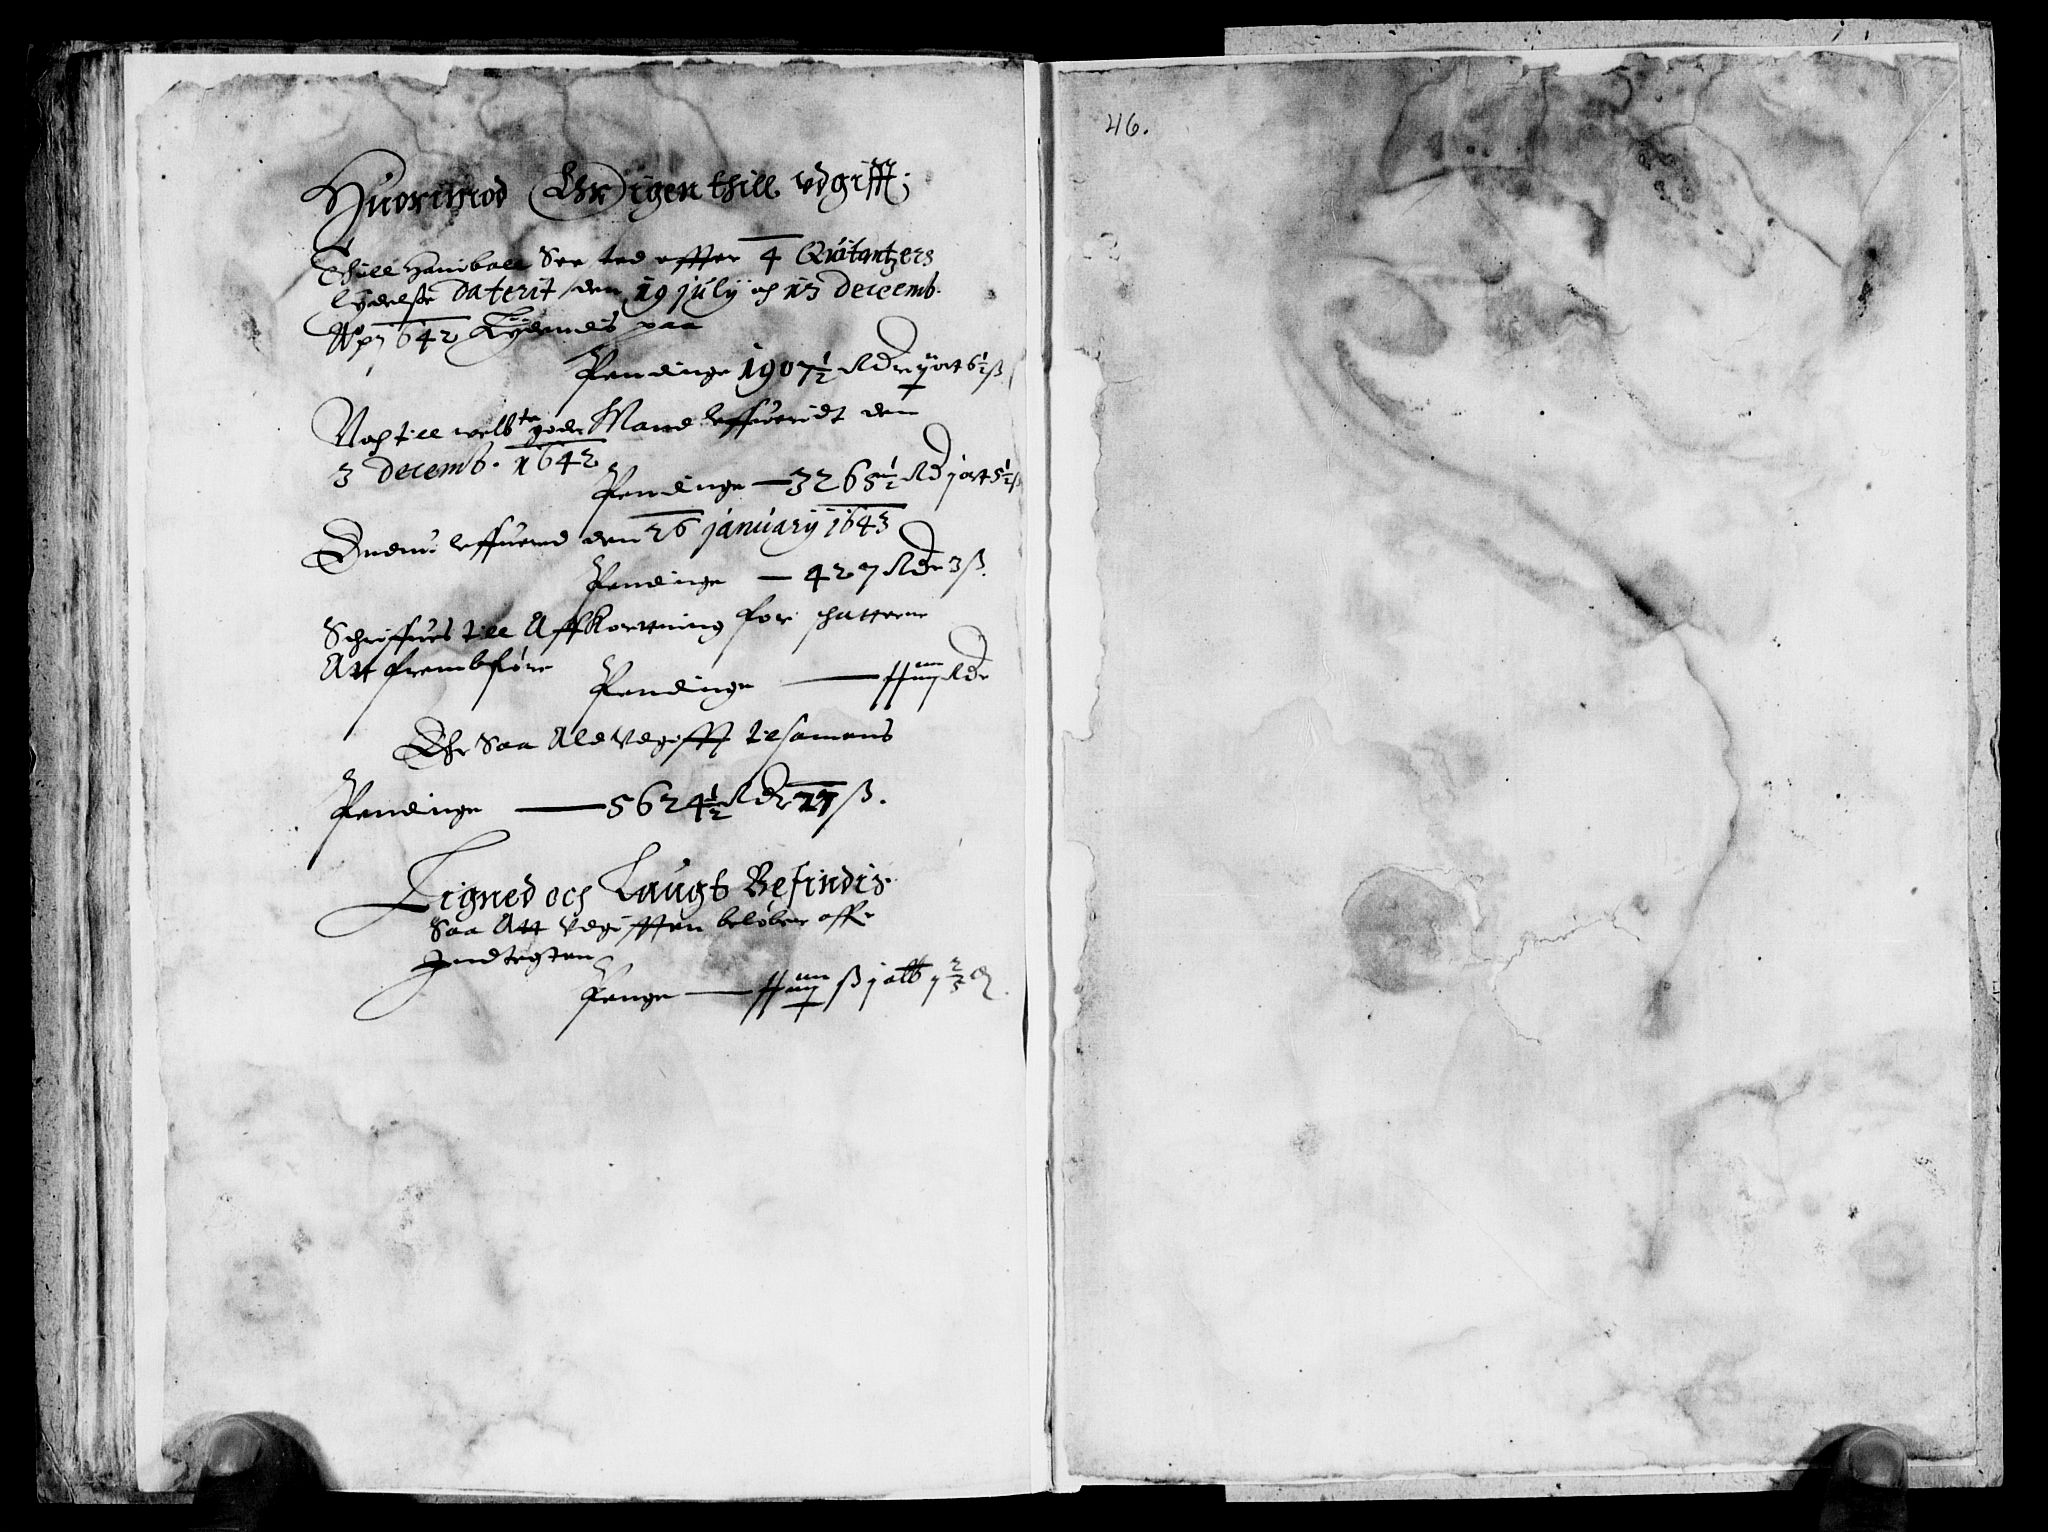 Huorimod Ehr igen thill vdgifft;
Thill Haniball Seested effter 4 Quitantzers
lydelsse Daterit den 19 july och 13 decemb.
Ao 1642 Lydendis paa
Pendinge 1907½ Rdr ij ort 6½ ß
Noch till welb:te gode Mand leffueridt den
3 decemb. 1642
Pendinge — 3265½ Rd j ort 5½ ß
Endnu leffuered den 26 january 1643
Pendinge — 427 Rdr 3 ß.
Schriffues till Affkortning for schatterne
Att frembføre
Pendinge — Rdr
Ehr Saa Ald Vdgifft tilsamens
Pendinge — 5624½ Rdr ß.
Ligned och Laugt Befindis
Saa Att Vdgifften beløber offr
Jndtegten
Penge — ß j alb
46.